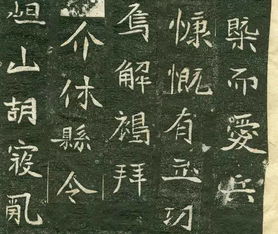 槩而愛兵
慷慨有立功
焉解褐拜
介休縣令
恒山胡寇亂